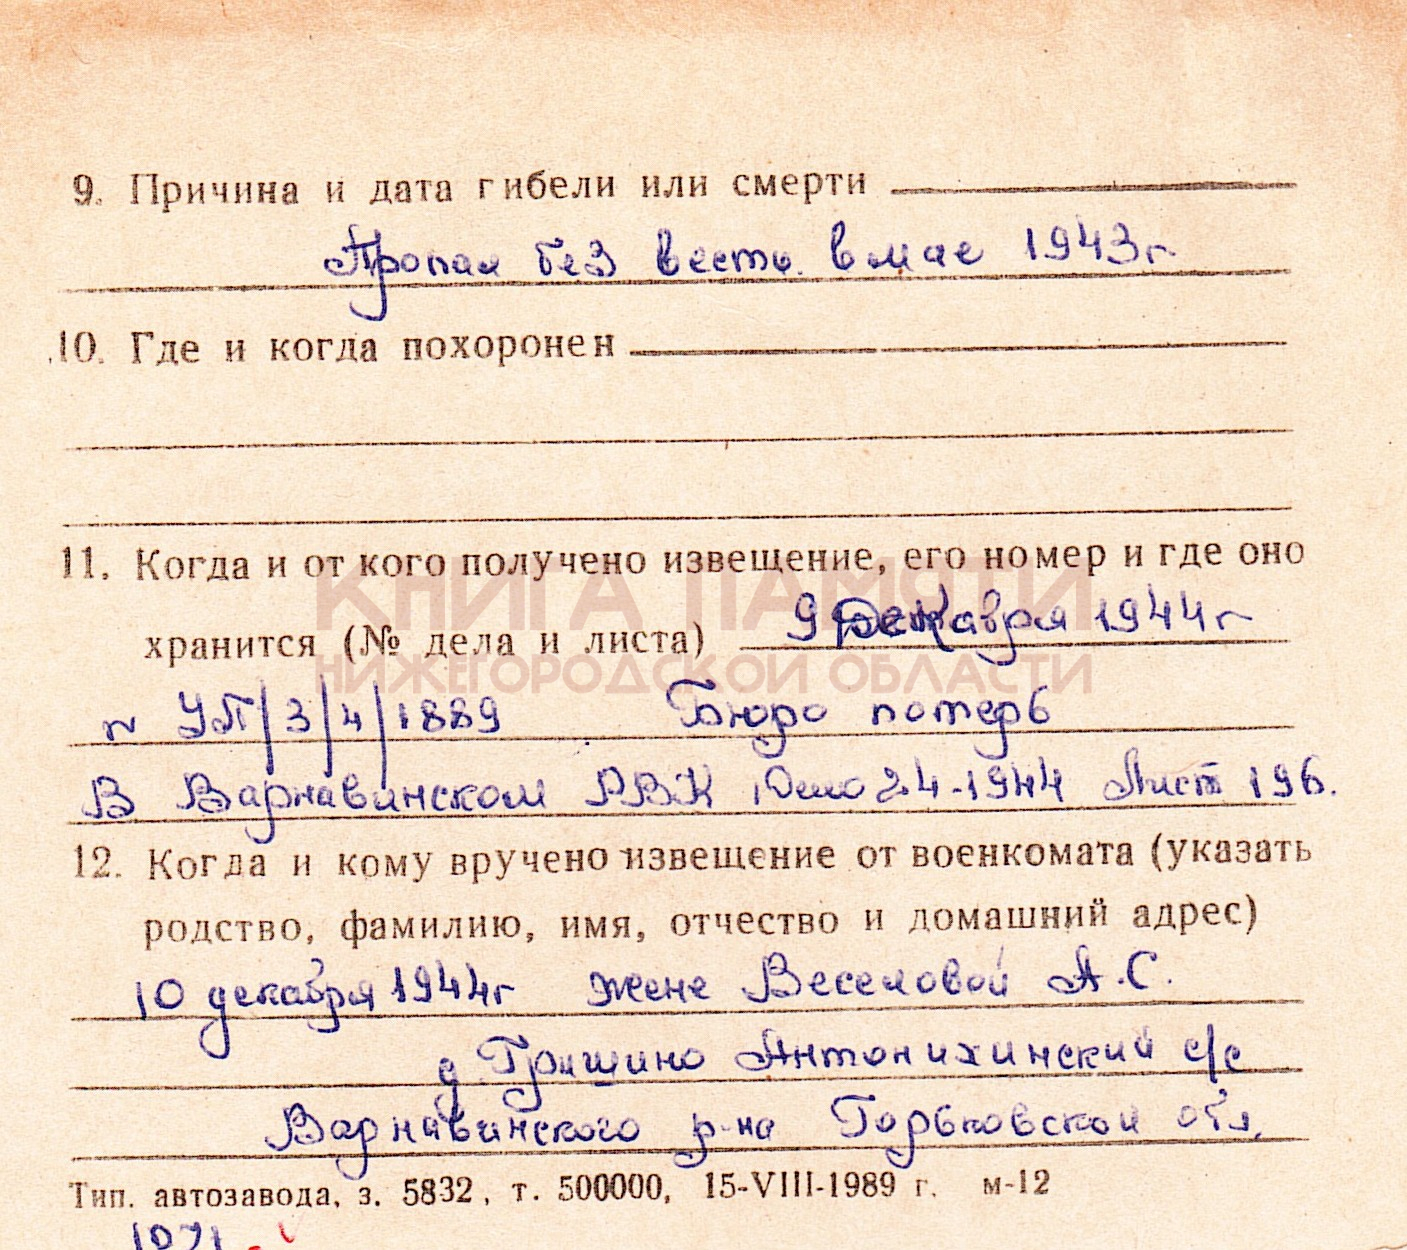 9. Причина и дата гибели или смерти
Пропал без вести в мае 1943 г
10. Где и когда похоронен
11. Когда и от кого получено извещение, его номер и где оно
КНИГА ПАМЯТИ
хранится (№ дела и листа) 9 декабря 1944 г
НИЖЕГОРОДСКОЙ ОБЛАСТИ
УП/3/4/1889 Бюро потерь
В Варнавинском РВК Дело 24-1944 Лист 196.
12. Когда и кому вручено извещение от военкомата (указать
родство, фамилию, имя, отчество и домашний адрес)
10 декабря 1944 г жене Веселовой А.С.
д Гришино Антонихинский с/с
Варнавинского р-на Горьковской обл.
Тип. автозавода, з. 5832, т. 500000, 15-VIII-1989 г. м-12